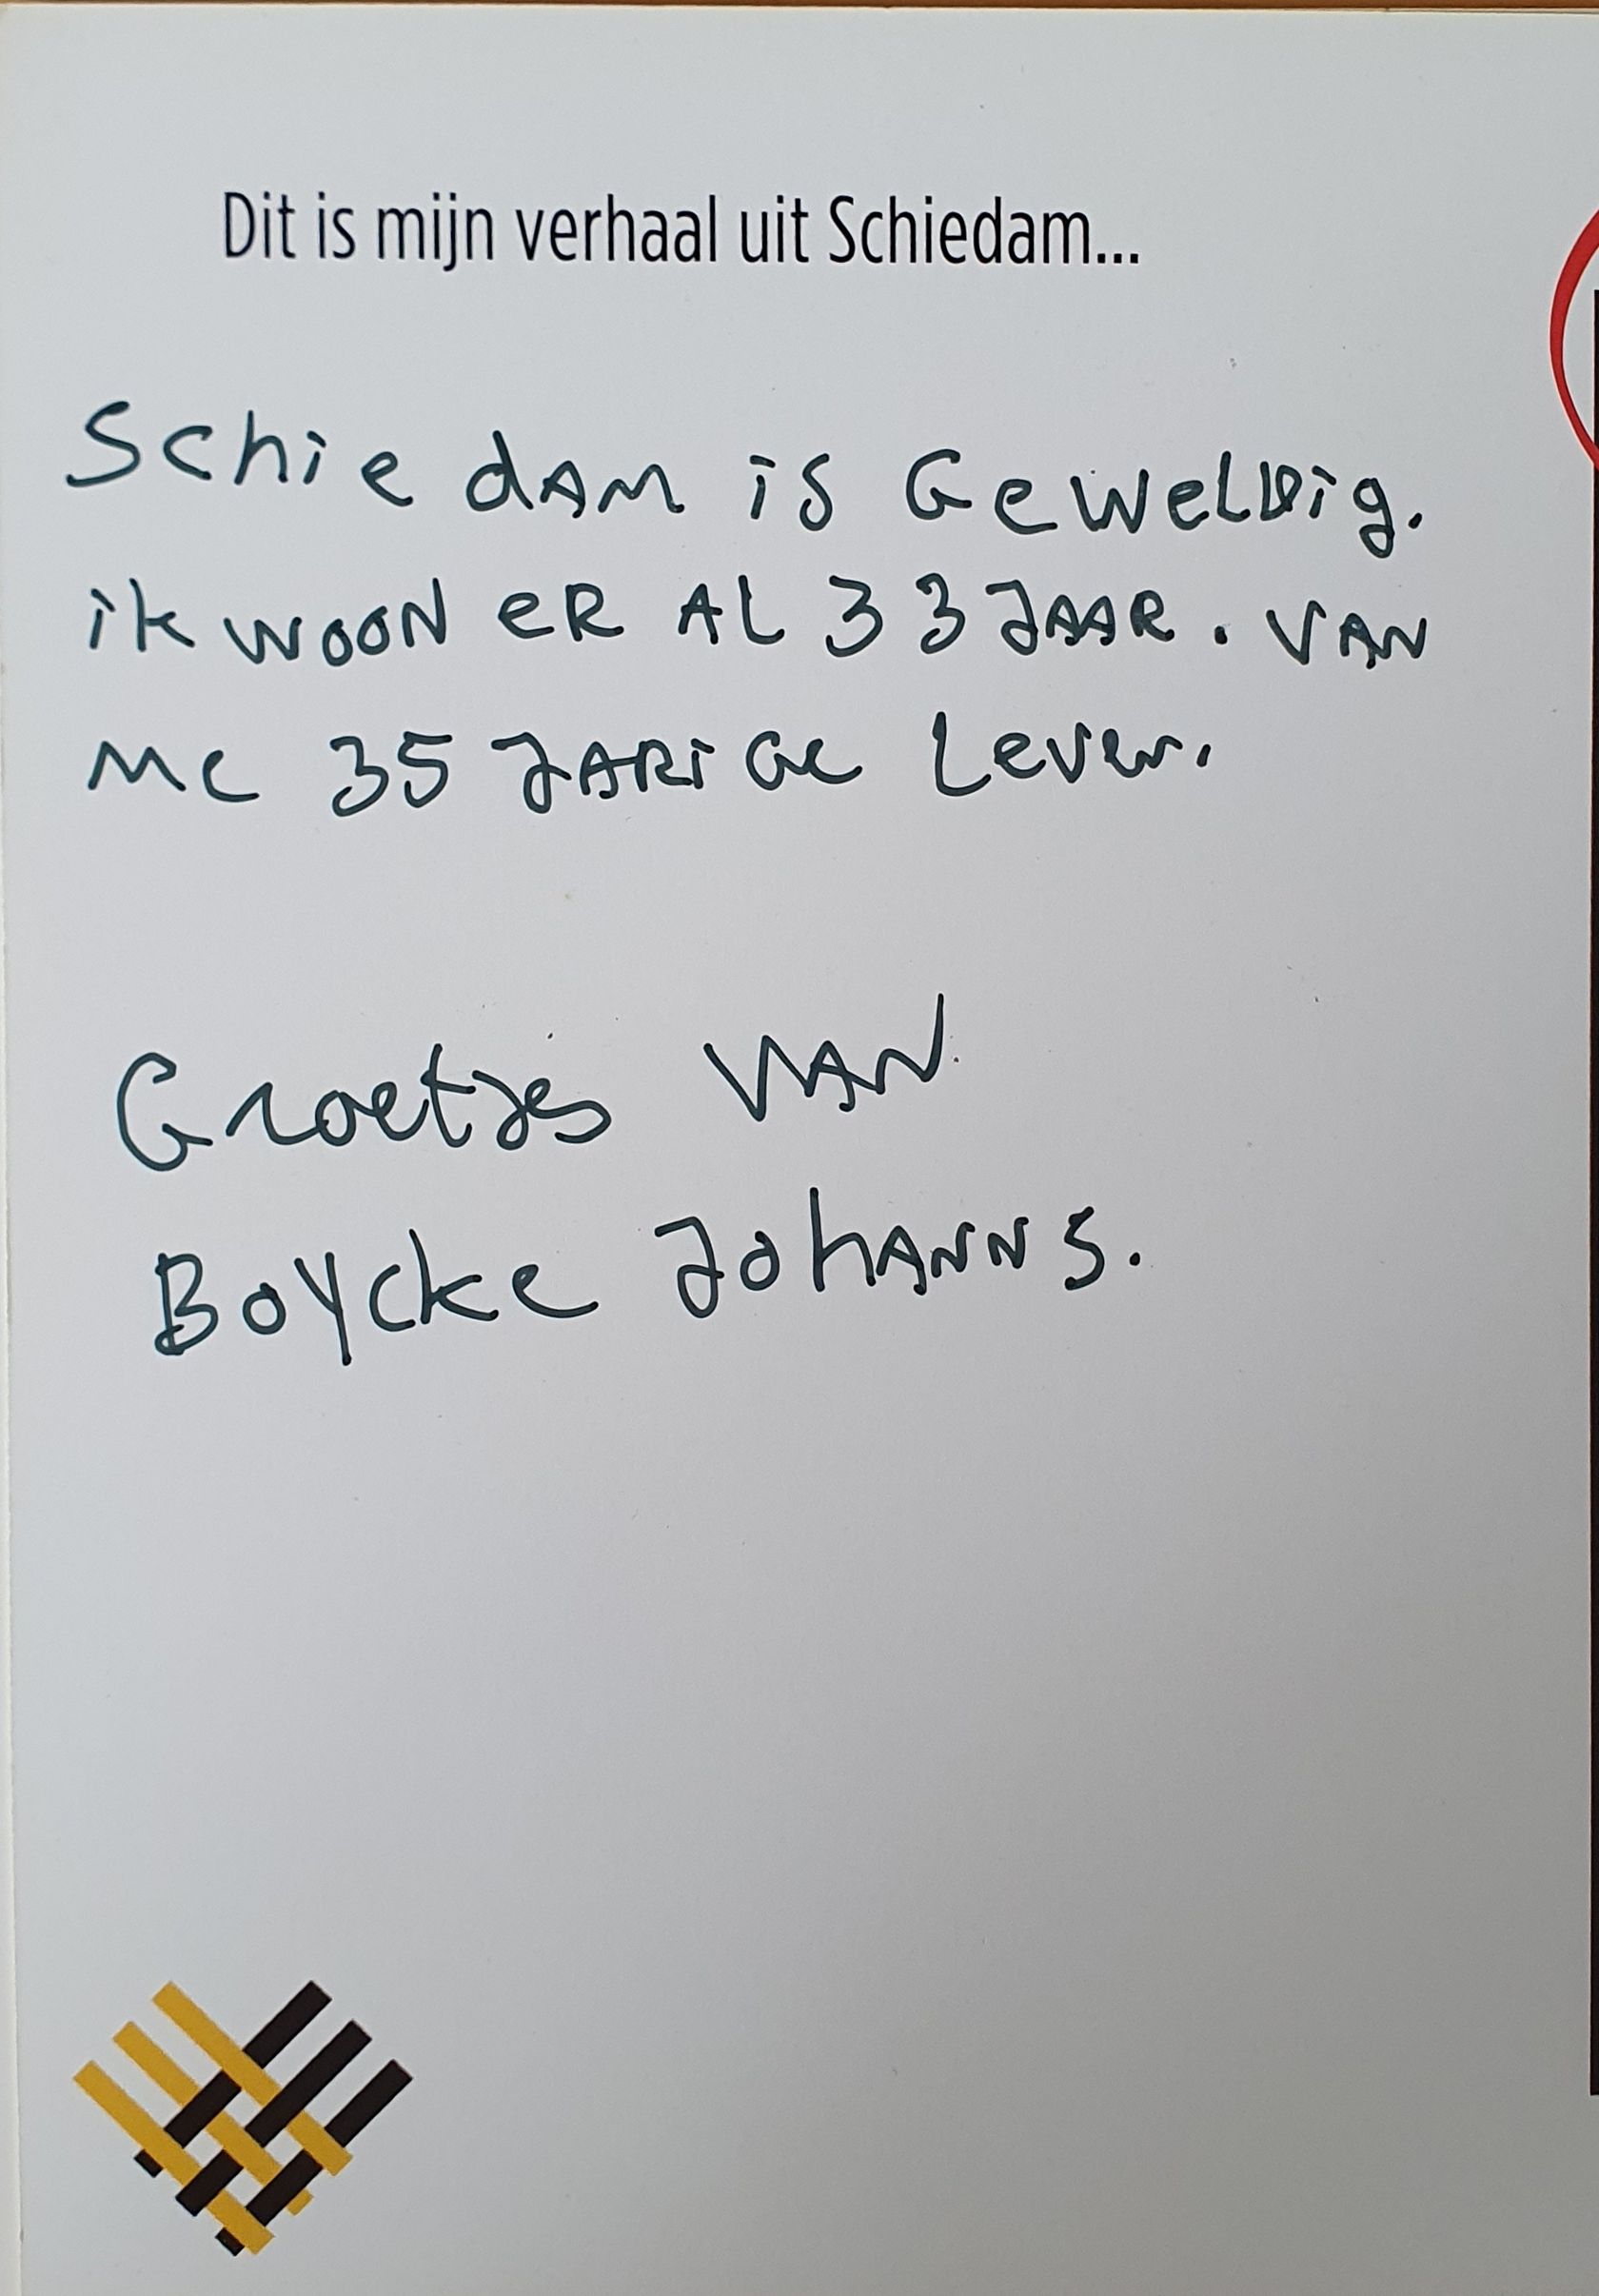 Dit is mijn verhaal uit Schiedam...
Schiedam is Geweldig.
ik woon er al 33 jaar. van
me 35 jarige leven.
Groetjes van
Boycke Johanns.